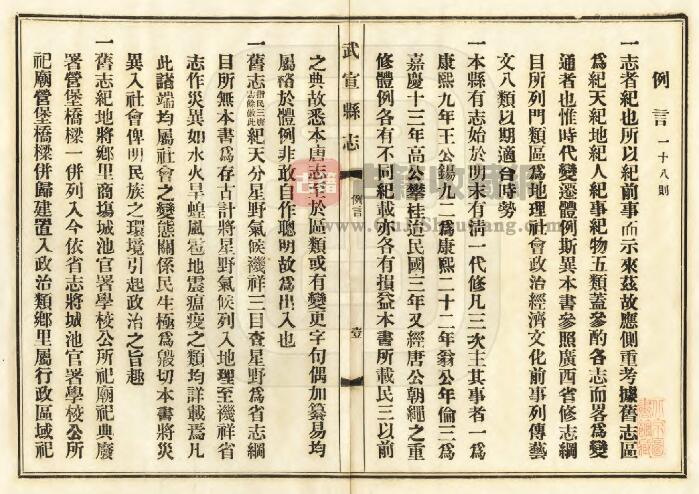 例言 一十八則
一志者紀也所以紀前事而示來茲故應側重考據舊志區
為紀天紀地紀人紀事紀物五類蓋參酌各志而畧為變
通者也惟時代變遷體例斯異本書參照廣西省修志綱
目所列門類區為地理社會政治經濟文化前事列傳藝
文八類以期適合時勢
一本縣有志始於明末有清一代修凡三次主其事者一為
康熙九年王公錫九二為康熙二十二年翁公年倫三為
嘉慶十三年高公攀桂洎民國三年又經唐公朝繩之重
修體例各有不同紀載亦各有損益本書所載民三以前
之典故悉本唐志至於區類或有變更字句偶加纂易均
屬格於體例非敢自作聰明故為出入也
一舊志指民三唐志餘倣此紀天分星野氣候禨祥三目查星野為省志綱
目所無本書為存古計將星野氣候列入地理至禨祥省
志作災異如水火旱蝗風雹地震瘟疫之類均詳載焉凡
此諸端均屬社會之變態關係民生極為殷切本書將災
異入社會俾明民族之環境引起政治之旨趣
一舊志紀地將鄉里商塲城池官署學校公所祀廟祀典廢
署營堡橋樑一併列入今依省志將城池官署學校公所
祀廟營堡橋樑併歸建置入政治類鄉里屬行政區域祀
武宣縣志
例言
壹